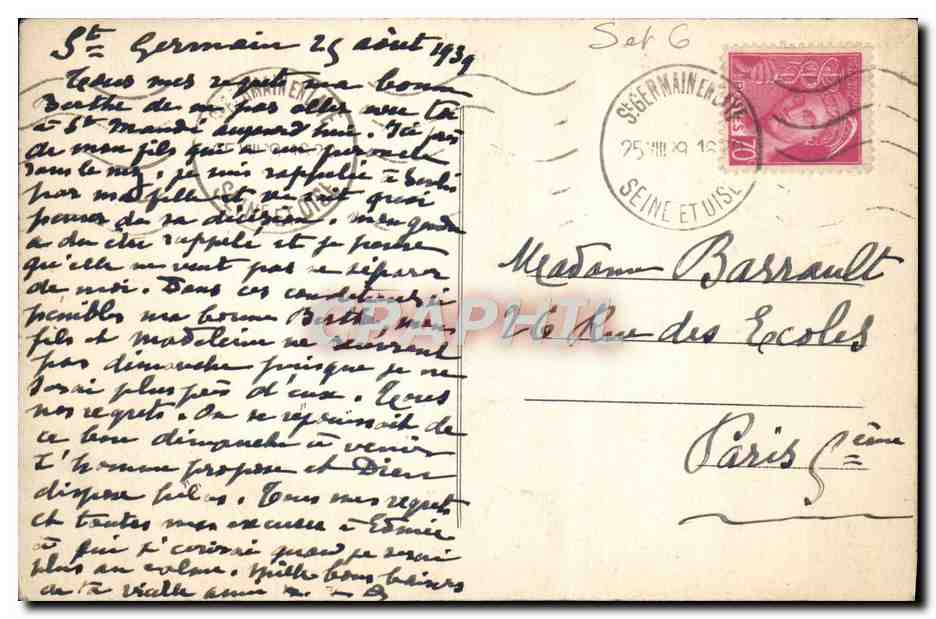 St Germain 25 août 1939
Tous mes regrets ma bonne
Berthe de ne pas aller voir toi
à St Mandé aujourd'hui. J'ai
de mon fils qui
dans le nez. je suis rappelée à Senlis
par ma fille et ne sait quoi
penser de sa décision. mon gendre
a du être rappelé et je pense
qu'elle ne veut pas se séparer
de moi. Dans ces conditions si
pénibles ma bonne Berthe, mon
fils et Madeleine ne viendront
pas dimanche puisque je ne
serai plus près d'eux. Tous
nos regrets. On se réjouissait de
ce bon dimanche à venir
L'homme propose et Dieu
dispose hélas. Tous mes regrets
et toutes mes excuses à Edmée
à qui j'écrirai quand je serai
plus au calme. Mille bons baisers
de ta vieille amie
Set 6
ST GERMAIN EN LAYE
25 VIII 39
SEINE ET OISE
ST GERMAIN EN LAYE
SEINE ET OISE
70
Madame Barrault
26 Rue des Ecoles
Paris 5ème
CPAPHIL